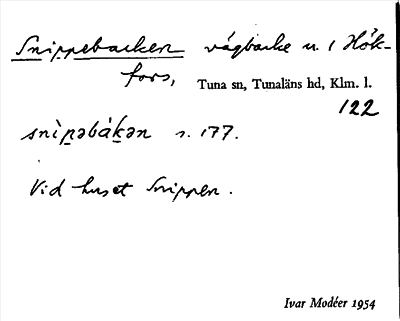 Snippebacken vägbacke n. 1 Hök-
fors, Tuna sn, Tunaläns hd, Klm. l.
122
snìp̱əbáḵən s. 177.
Vid huset Snippen.
Ivar Modéer 1954